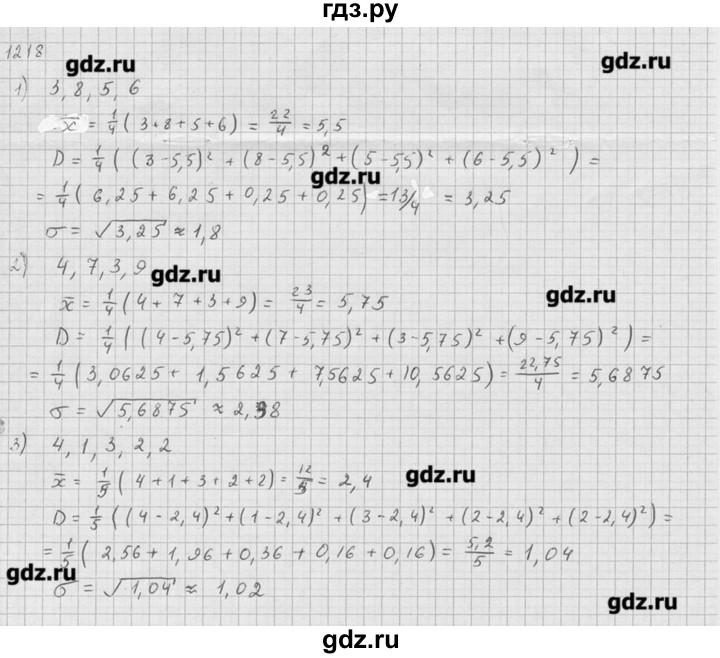 гдз.ру
1218
gdz.ru
gdz.ru
1) 3, 8, 5, 6
x̅ = 1/4 ( 3+8+5+6) = 22/4 = 5,5
D = 1/4 ( (3-5,5)² + (8-5,5)² + (5-5,5)² + (6-5,5)² ) =
gdz.ru
= 1/4 ( 6,25 + 6,25 + 0,25 + 0,25) = 13/4 = 3,25
σ = √3,25 ≈ 1,8
2) 4, 7, 3, 9
gdz.ru
x̅ = 1/4 ( 4 + 7 + 3 + 9) = 23/4 = 5,75
gdz.ru
D = 1/4 ( (4-5,75)² + (7-5,75)² + (3-5,75)² + (9-5,75)² ) =
= 1/4 ( 3,0625 + 1,5625 + 7,5625 + 10,5625) = 22,75/4 = 5,6875
σ = √5,6875 ≈ 2,38
3) 4, 1, 3, 2, 2
x̅ = 1/5 ( 4+1+3+2+2) = 12/5 = 2,4
gdz.ru
D = 1/5 ( (4-2,4)² + (1-2,4)² + (3-2,4)² + (2-2,4)² + (2-2,4)² ) =
= 1/5 ( 2,56 + 1,96 + 0,36 + 0,16 + 0,16) = 5,2/5 = 1,04
gdz.ru
σ = √1,04 ≈ 1,02
gdz.ru
gdz.ru